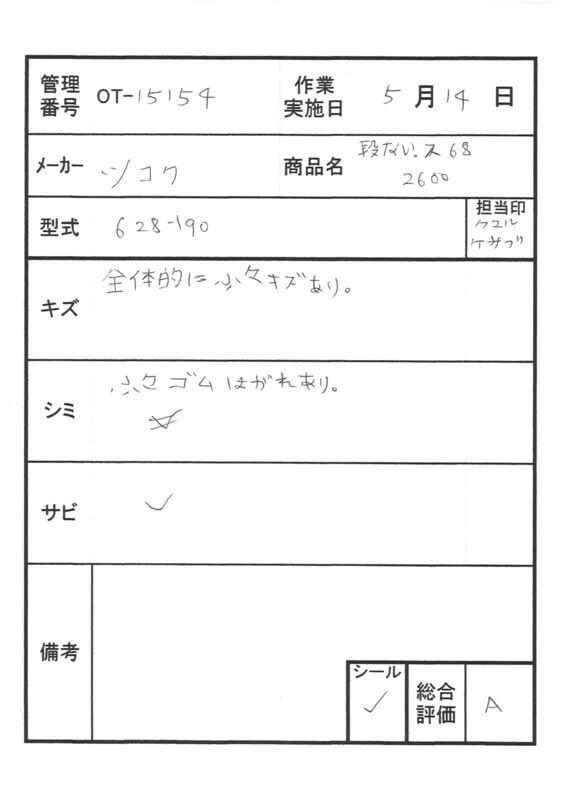 管理番号 OT-15154 作業実施日 5月14日
メーカー シコク 商品名 段ない.ス68
2600
型式 628-190 担当印
キズ 全体的に少々キズあり。
シミ 少々ゴムはがれあり。
サビ ✓
備考
シール ✓ 総合評価 A